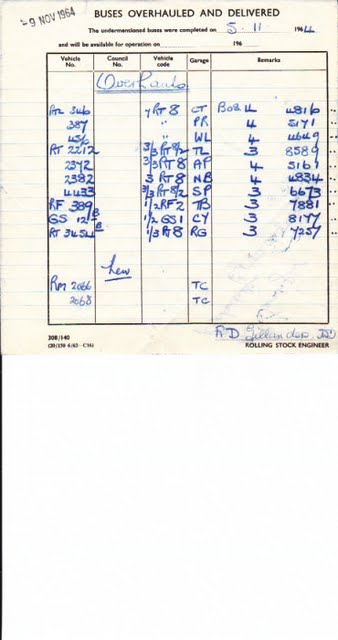 -9 NOV 1964
BUSES OVERHAULED AND DELIVERED
The undermentioned buses were completed on 5.11. 1964
and will be available for operation on 196
Vehicle No. Council No. Vehicle code Garage Remarks
Overhauls
RTL 346 7RT8 CT Bod 4 4816
387 " PR 4 5171
456 " WL 4 4649
RT 2212 3/3RT8/2 TL 3 8589
2372 3/3RT8 AP 4 5161
2382 3RT8 NB 4 4834
4433 3/3RT8/2 SP 3 6673
RF 389 1/2RF2 TB 3 7881
GS 12 B 1/2GS1 CY 3 8177
RT 3454 B 1/3RT8 RG 3 7257
New
RM 2066 TC
2068 TC
308/140
(20/150 6/62 C16)
ROLLING STOCK ENGINEER